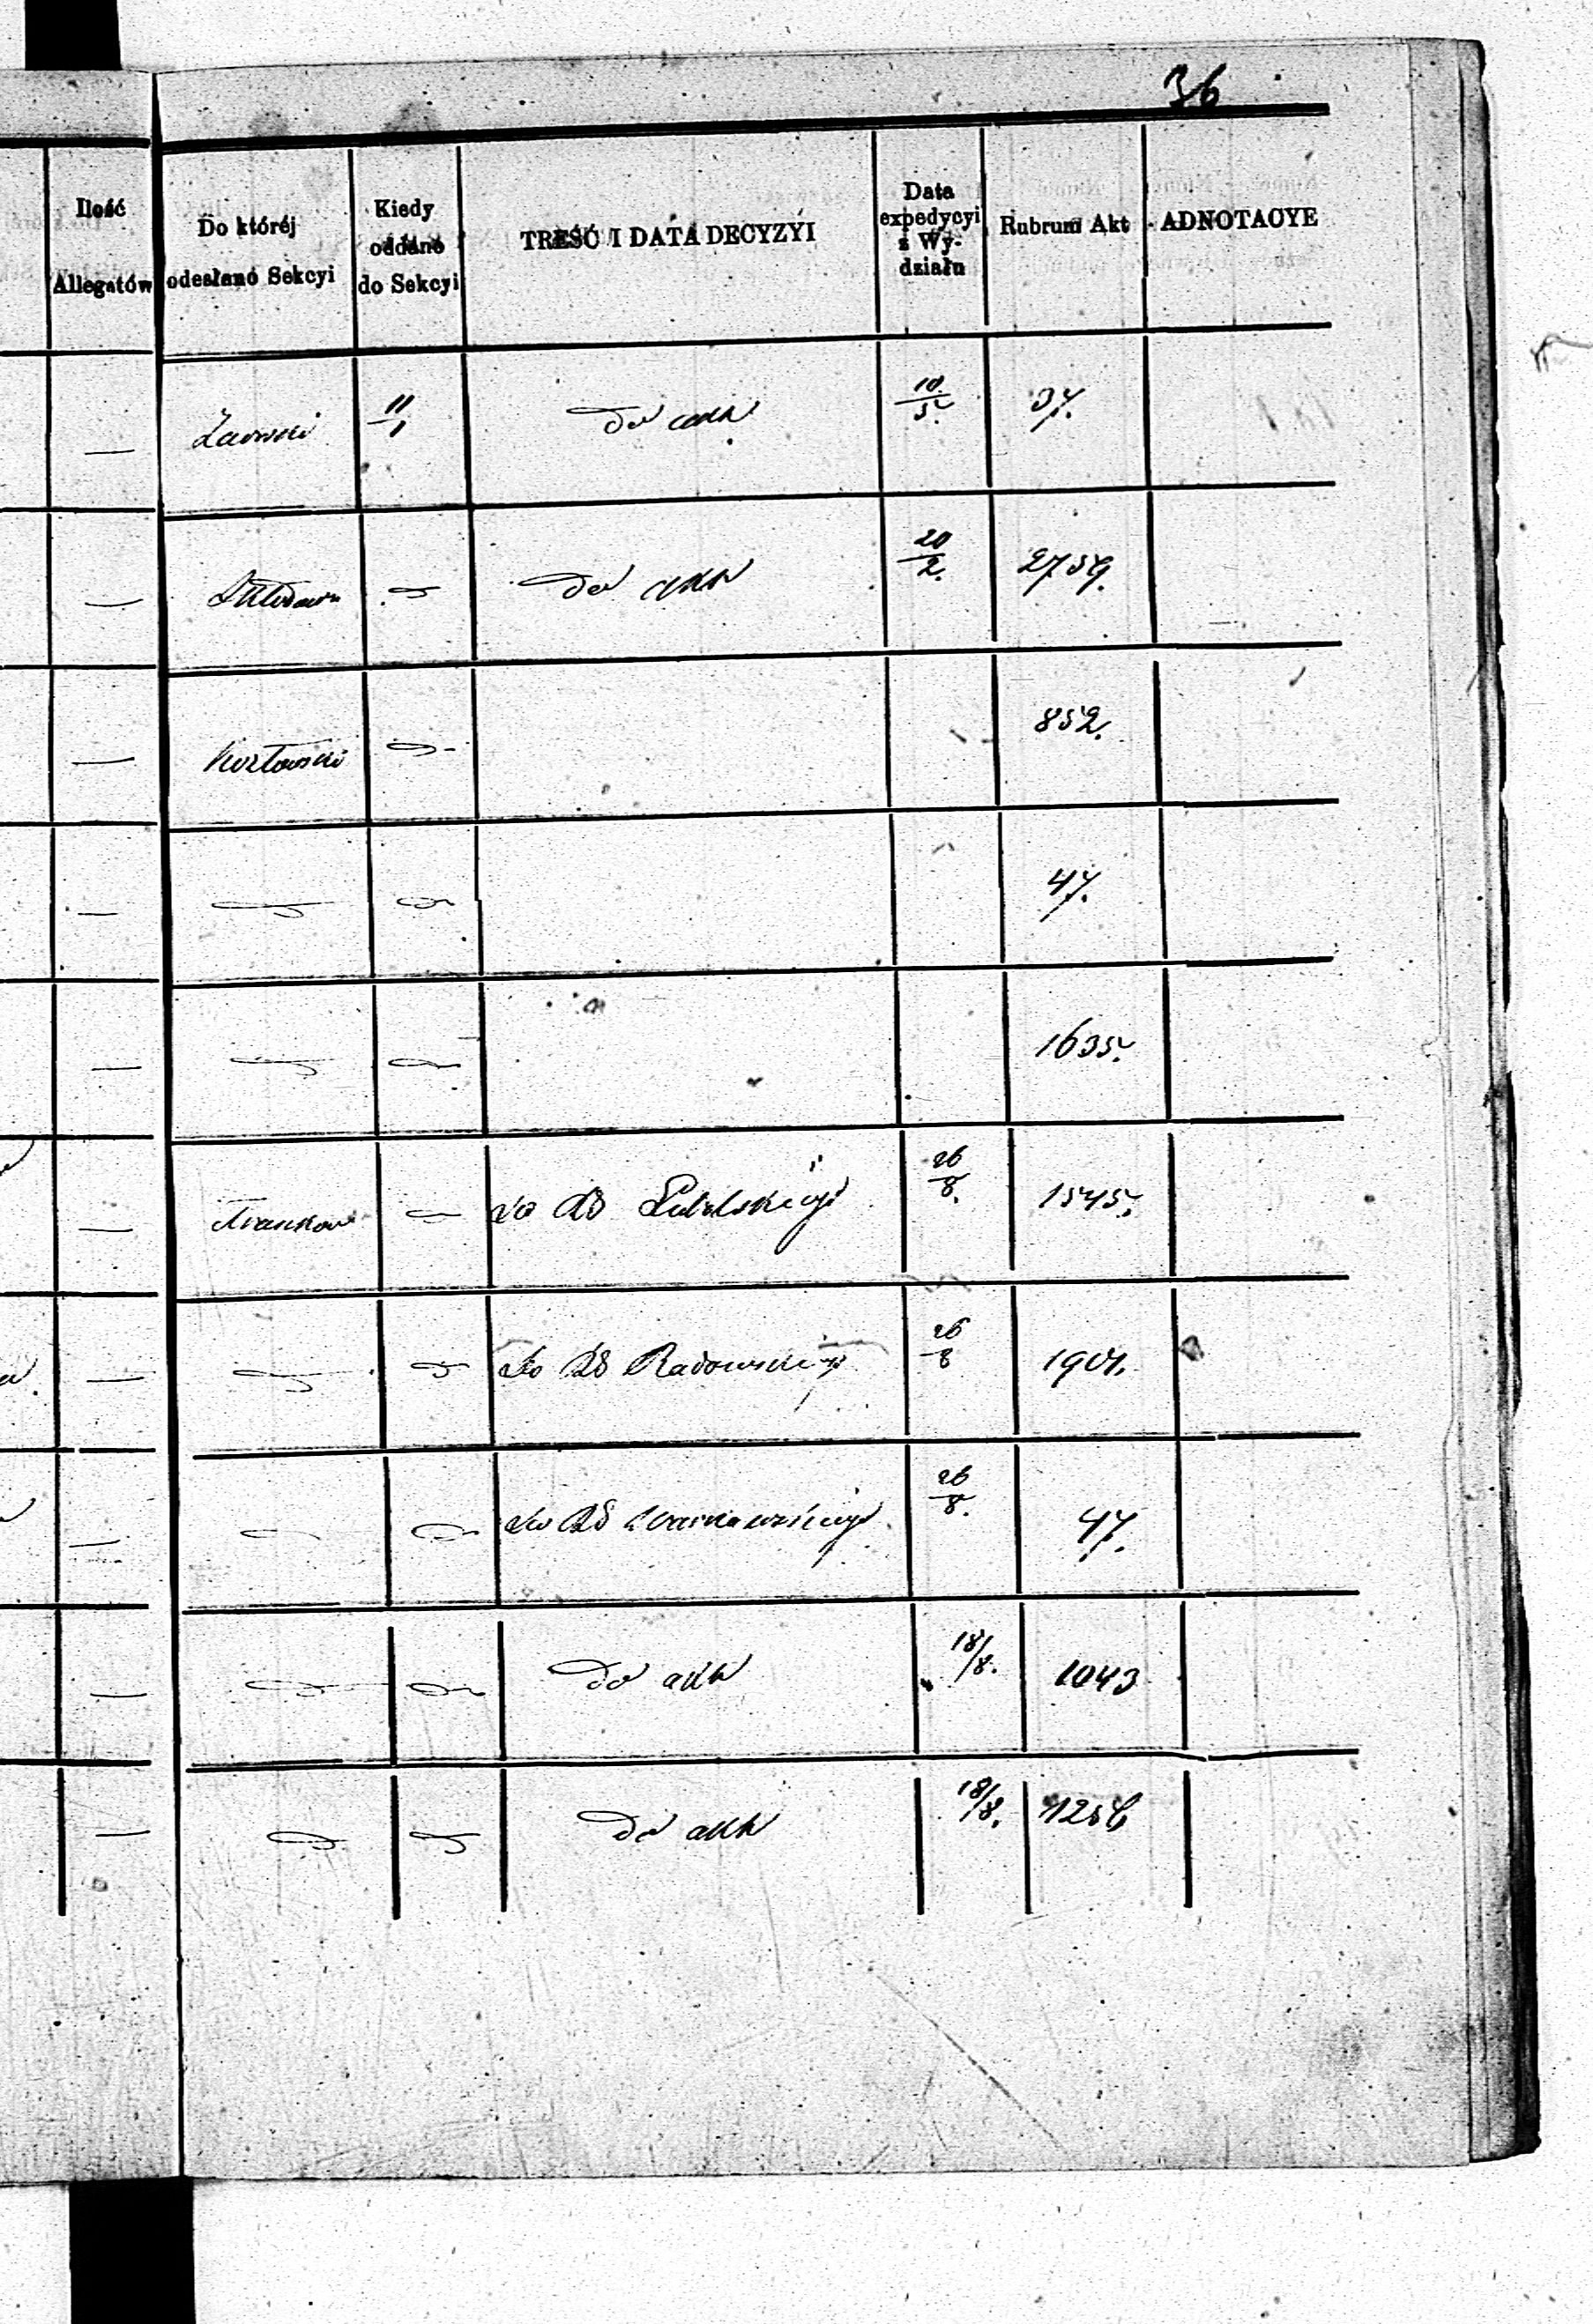 36
Ilość Allegatów
Do któréj odesłano Sekcyi
Kiedy oddano do Sekcyi
TREŚĆ I DATA DECYZYI
Data expedycyi z Wydziału
Rubrum Akt
ADNOTACYE
— 11/1 do akt 10/5. 37.
— do akt 20/2. 2759.
— Kozłowski 852.
— 47.
— 1635.
— do RG Lubelskiego 26/8. 1545.
— do RG Radomskiego 26/8 1901.
— do RG Warszawskiego 26/8. 47.
— do akt 18/8. 1043
— do akt 18/8. 1256